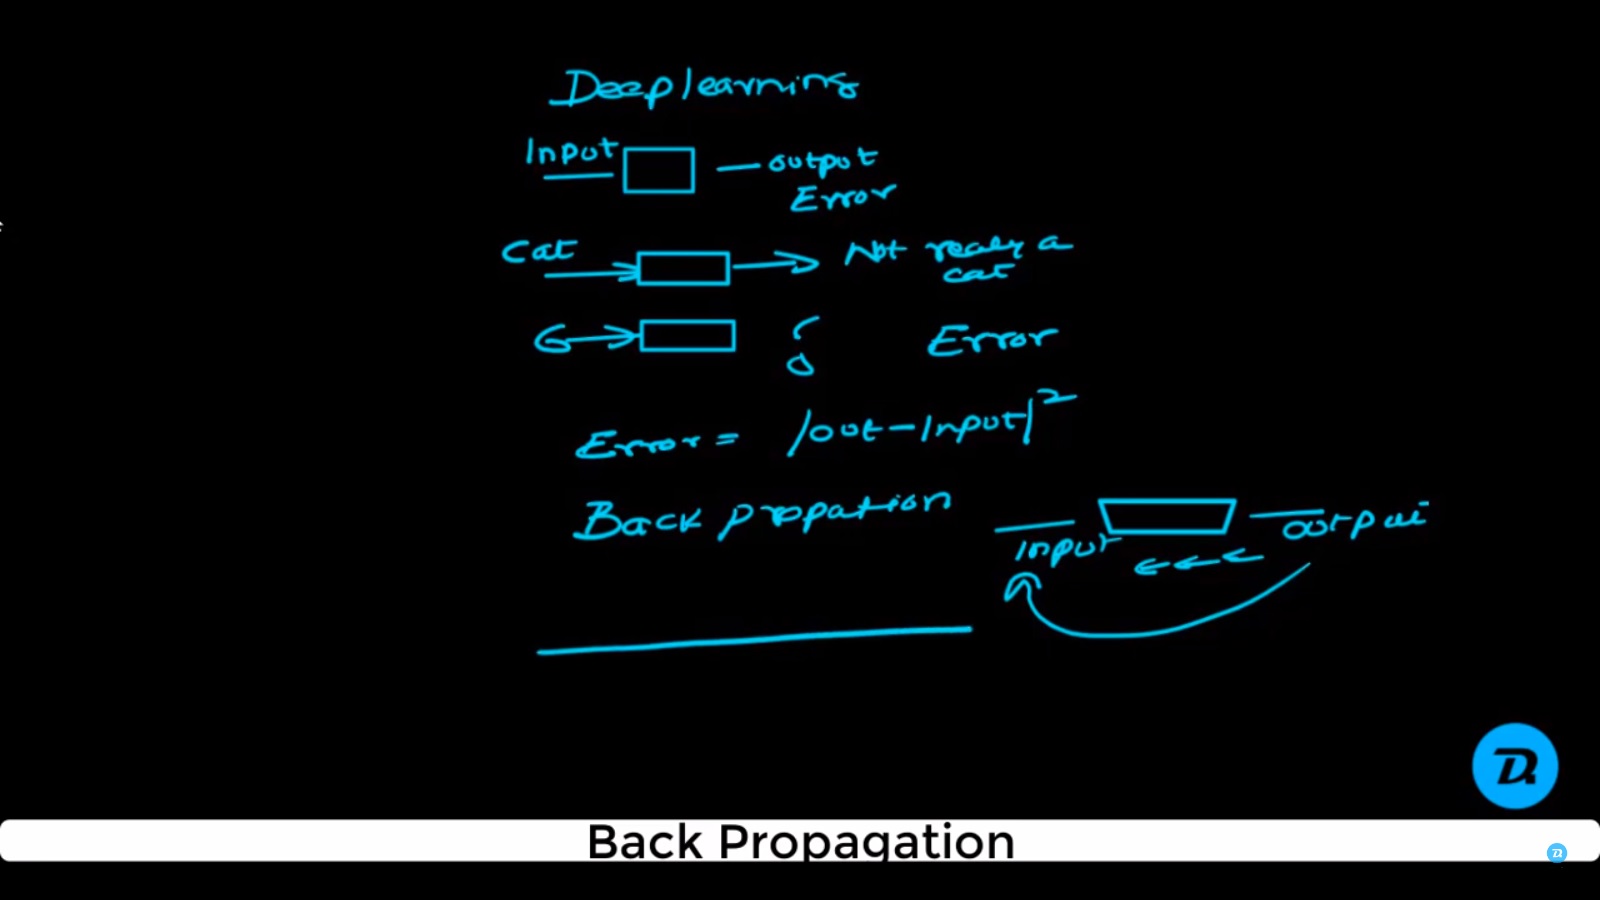 Deep learning
Input
output
Error
Cat
Not realy a
cat
G
Error
Error = |out - Input|²
Back propation
input
output
Back Propagation